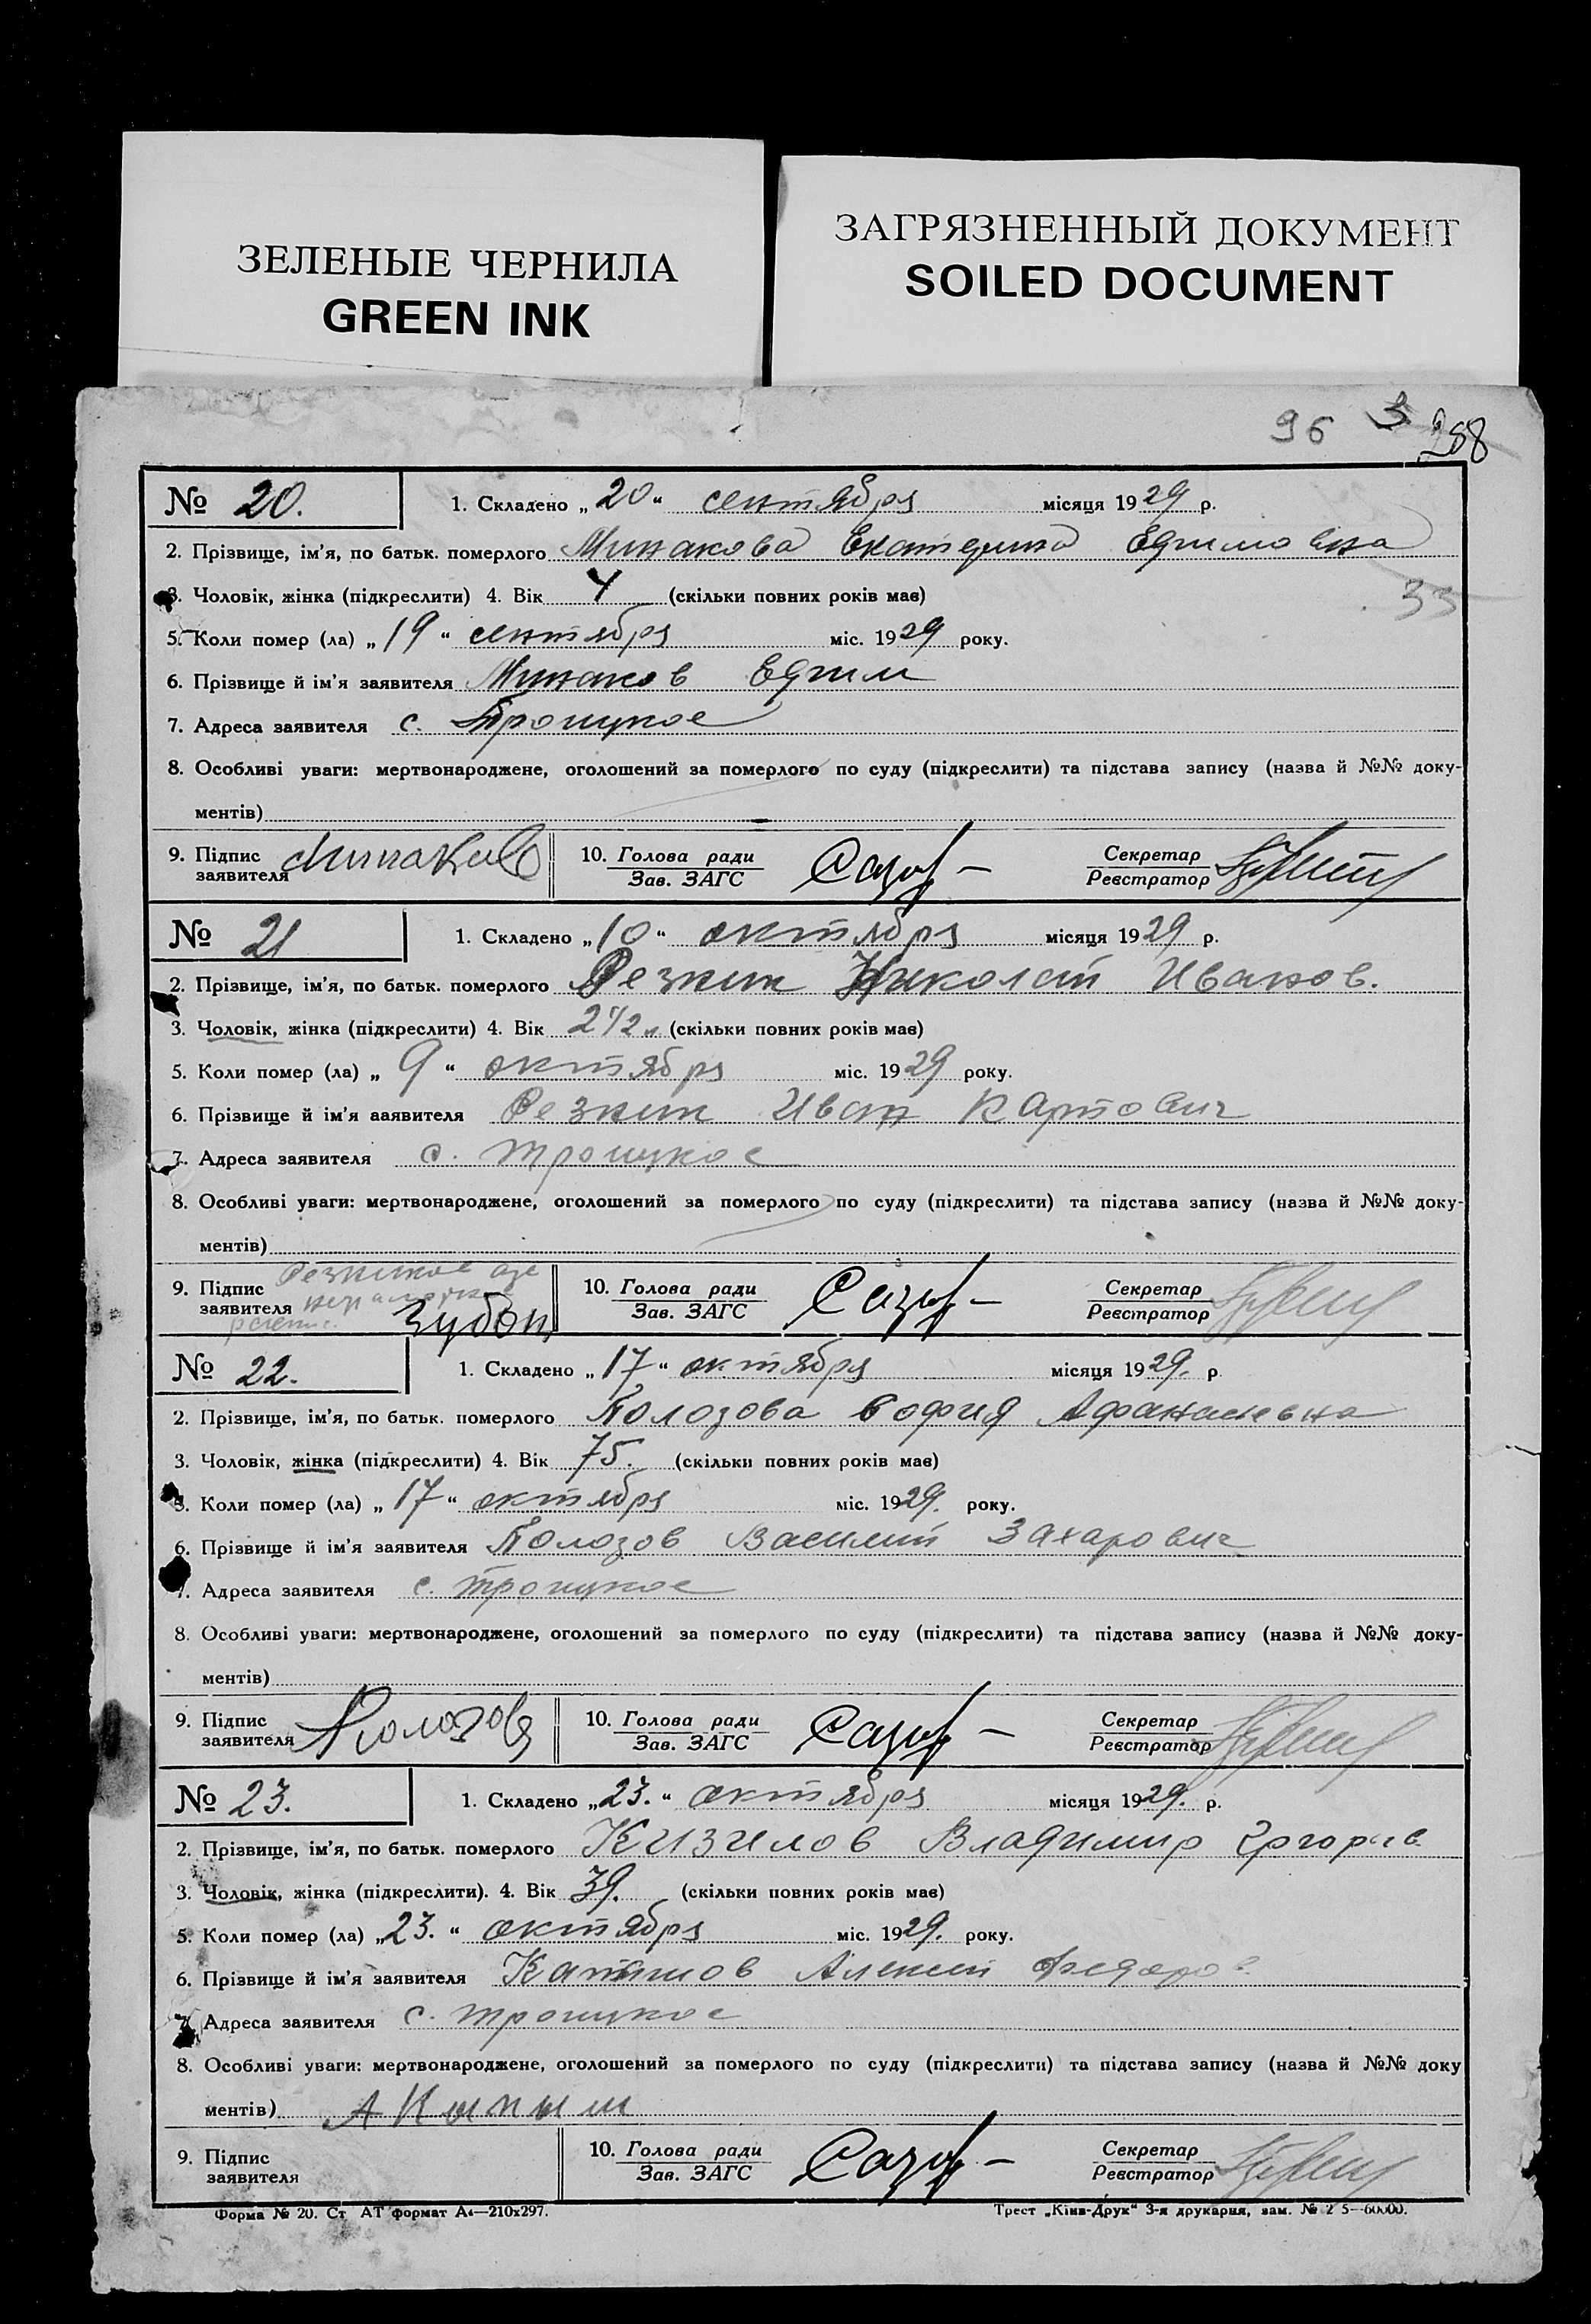 ЗЕЛЕНЫЕ ЧЕРНИЛА
GREEN INK
ЗАГРЯЗНЕННЫЙ ДОКУМЕНТ
SOILED DOCUMENT
96 3 258
№ 20. 1. Складено „20“ сентября місяця 1929 р.
2. Прізвище, ім’я, по батьк. померлого Минакова Екатерина Ефимовна
3. Чоловік, жінка (підкреслити) 4. Вік 4 (скільки повних років має)
33
5. Коли помер (ла) „19“ сентября міс. 1929 року.
6. Прізвище й ім’я заявителя Минаков Ефим
7. Адреса заявителя с. Троицкое
8. Особливі уваги: мертвонароджене, оголошений за померлого по суду (підкреслити) та підстава запису (назва й №№ доку-
ментів)
9. Підпис заявителя Минаков 10. Голова ради Зав. ЗАГС Секретар Реєстратор
№ 21 1. Складено „10“ октября місяця 1929 р.
2. Прізвище, ім’я, по батьк. померлого Резник Николай Иванов.
3. Чоловік, жінка (підкреслити) 4. Вік 2 1/2 (скільки повних років має)
5. Коли помер (ла) „9“ октября міс. 1929 року.
6. Прізвище й ім’я заявителя Резник Иван Карпович
7. Адреса заявителя с. Троицкое
8. Особливі уваги: мертвонароджене, оголошений за померлого по суду (підкреслити) та підстава запису (назва й №№ доку-
ментів)
9. Підпис заявителя 10. Голова ради Зав. ЗАГС Секретар Реєстратор
№ 22. 1. Складено „17“ октября місяця 1929. р
2. Прізвище, ім’я, по батьк. померлого Полозова София Афанасьевна
3. Чоловік, жінка (підкреслити) 4. Вік 75. (скільки повних років має)
5. Коли помер (ла) „17“ октября міс. 1929. року.
6. Прізвище й ім’я заявителя Полозов Василий Захарович
7. Адреса заявителя с. Троицкое
8. Особливі уваги: мертвонароджене, оголошений за померлого по суду (підкреслити) та підстава запису (назва й №№ доку-
ментів)
9. Підпис заявителя Полозов 10. Голова ради Зав. ЗАГС Секретар Реєстратор
№ 23. 1. Складено „23.“ октября місяця 1929. р.
2. Прізвище, ім’я, по батьк. померлого Кизилов Владимир
3. Чоловік, жінка (підкреслити). 4. Вік 39. (скільки повних років має)
5. Коли помер (ла) „23.“ октября міс. 1929. року.
6. Прізвище й ім’я заявителя Алексей Федоров
7. Адреса заявителя с. Троицкое
8. Особливі уваги: мертвонароджене, оголошений за померлого по суду (підкреслити) та підстава запису (назва й №№ доку
ментів)
9. Підпис заявителя 10. Голова ради Зав. ЗАГС Секретар Реєстратор
Форма № 20. Ст АТ формат А4—210х297. Трест „Київ-Друк“ 3-я друкарня, зам. №